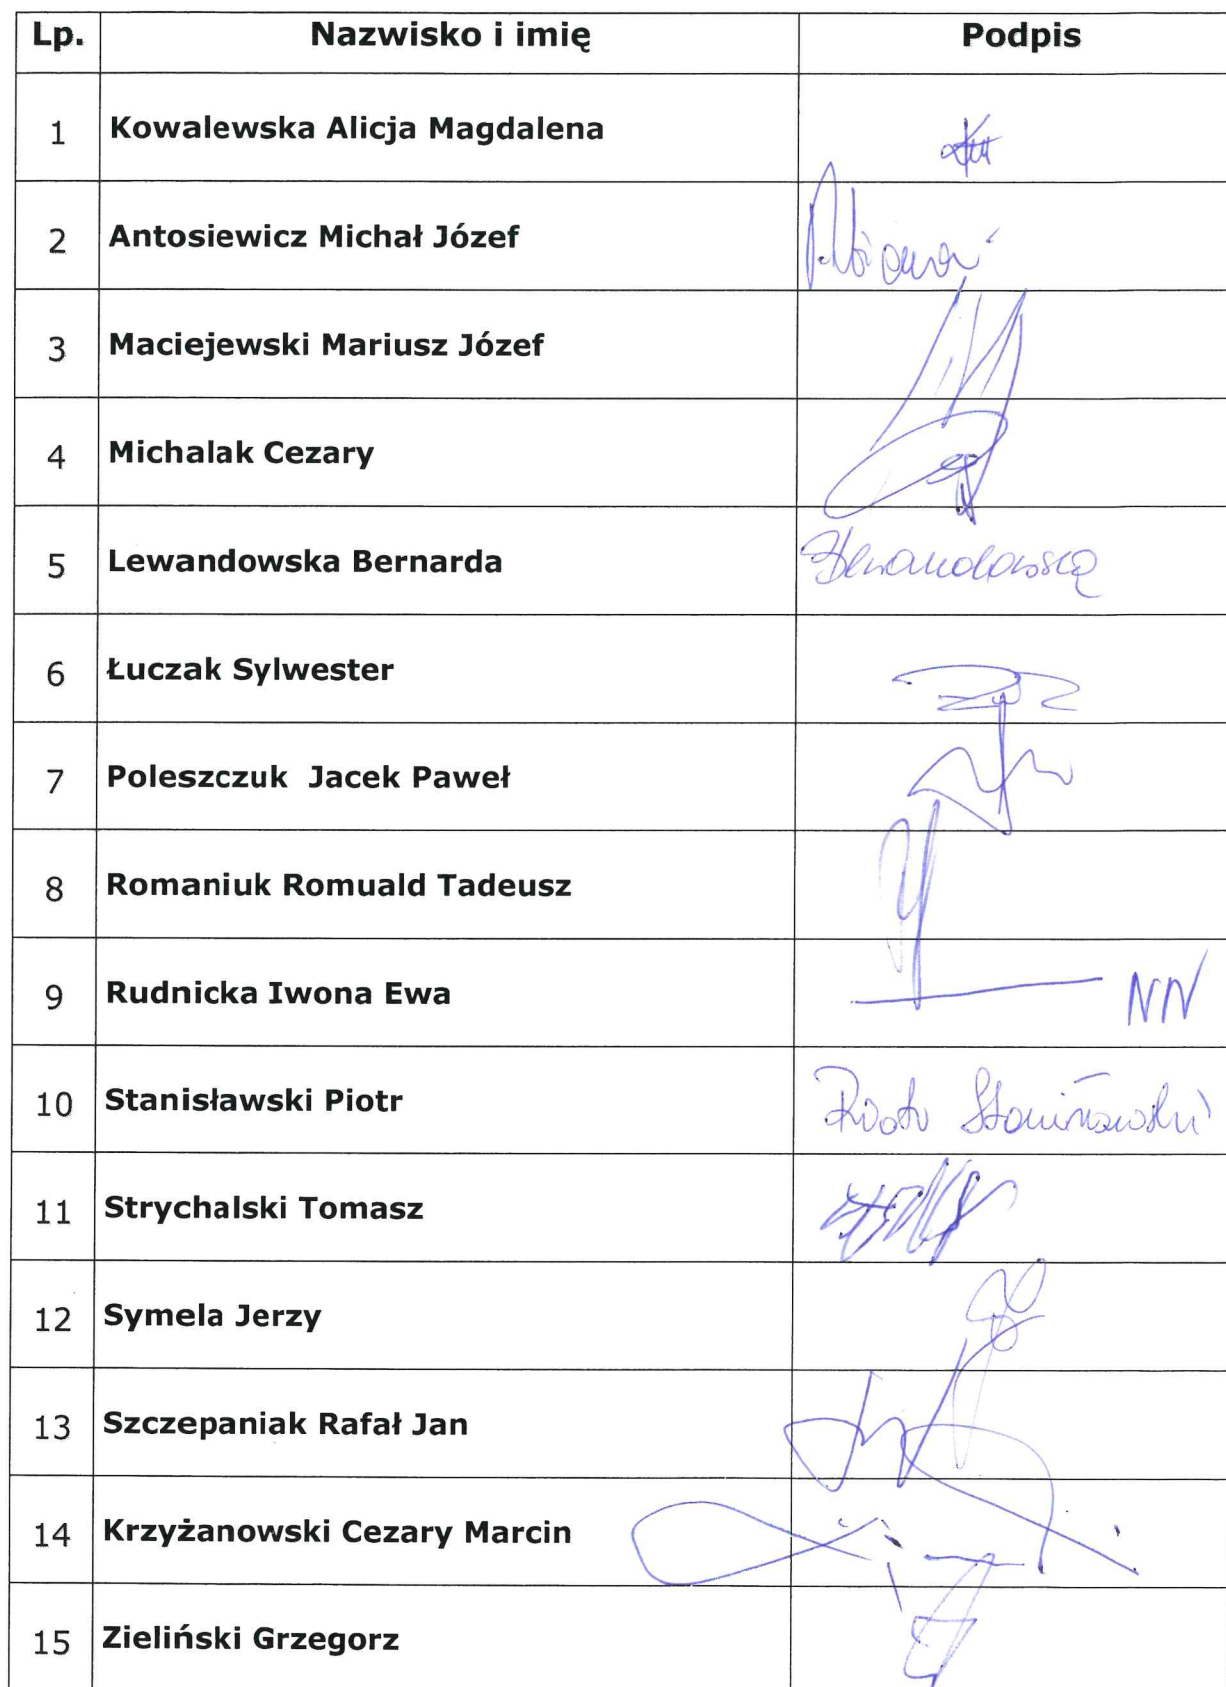 Lp. Nazwisko i imię Podpis
1 Kowalewska Alicja Magdalena
2 Antosiewicz Michał Józef
3 Maciejewski Mariusz Józef
4 Michalak Cezary
5 Lewandowska Bernarda
6 Łuczak Sylwester
7 Poleszczuk Jacek Paweł
8 Romaniuk Romuald Tadeusz
9 Rudnicka Iwona Ewa NN
10 Stanisławski Piotr Piotr Stanisławski
11 Strychalski Tomasz
12 Symela Jerzy
13 Szczepaniak Rafał Jan
14 Krzyżanowski Cezary Marcin
15 Zieliński Grzegorz